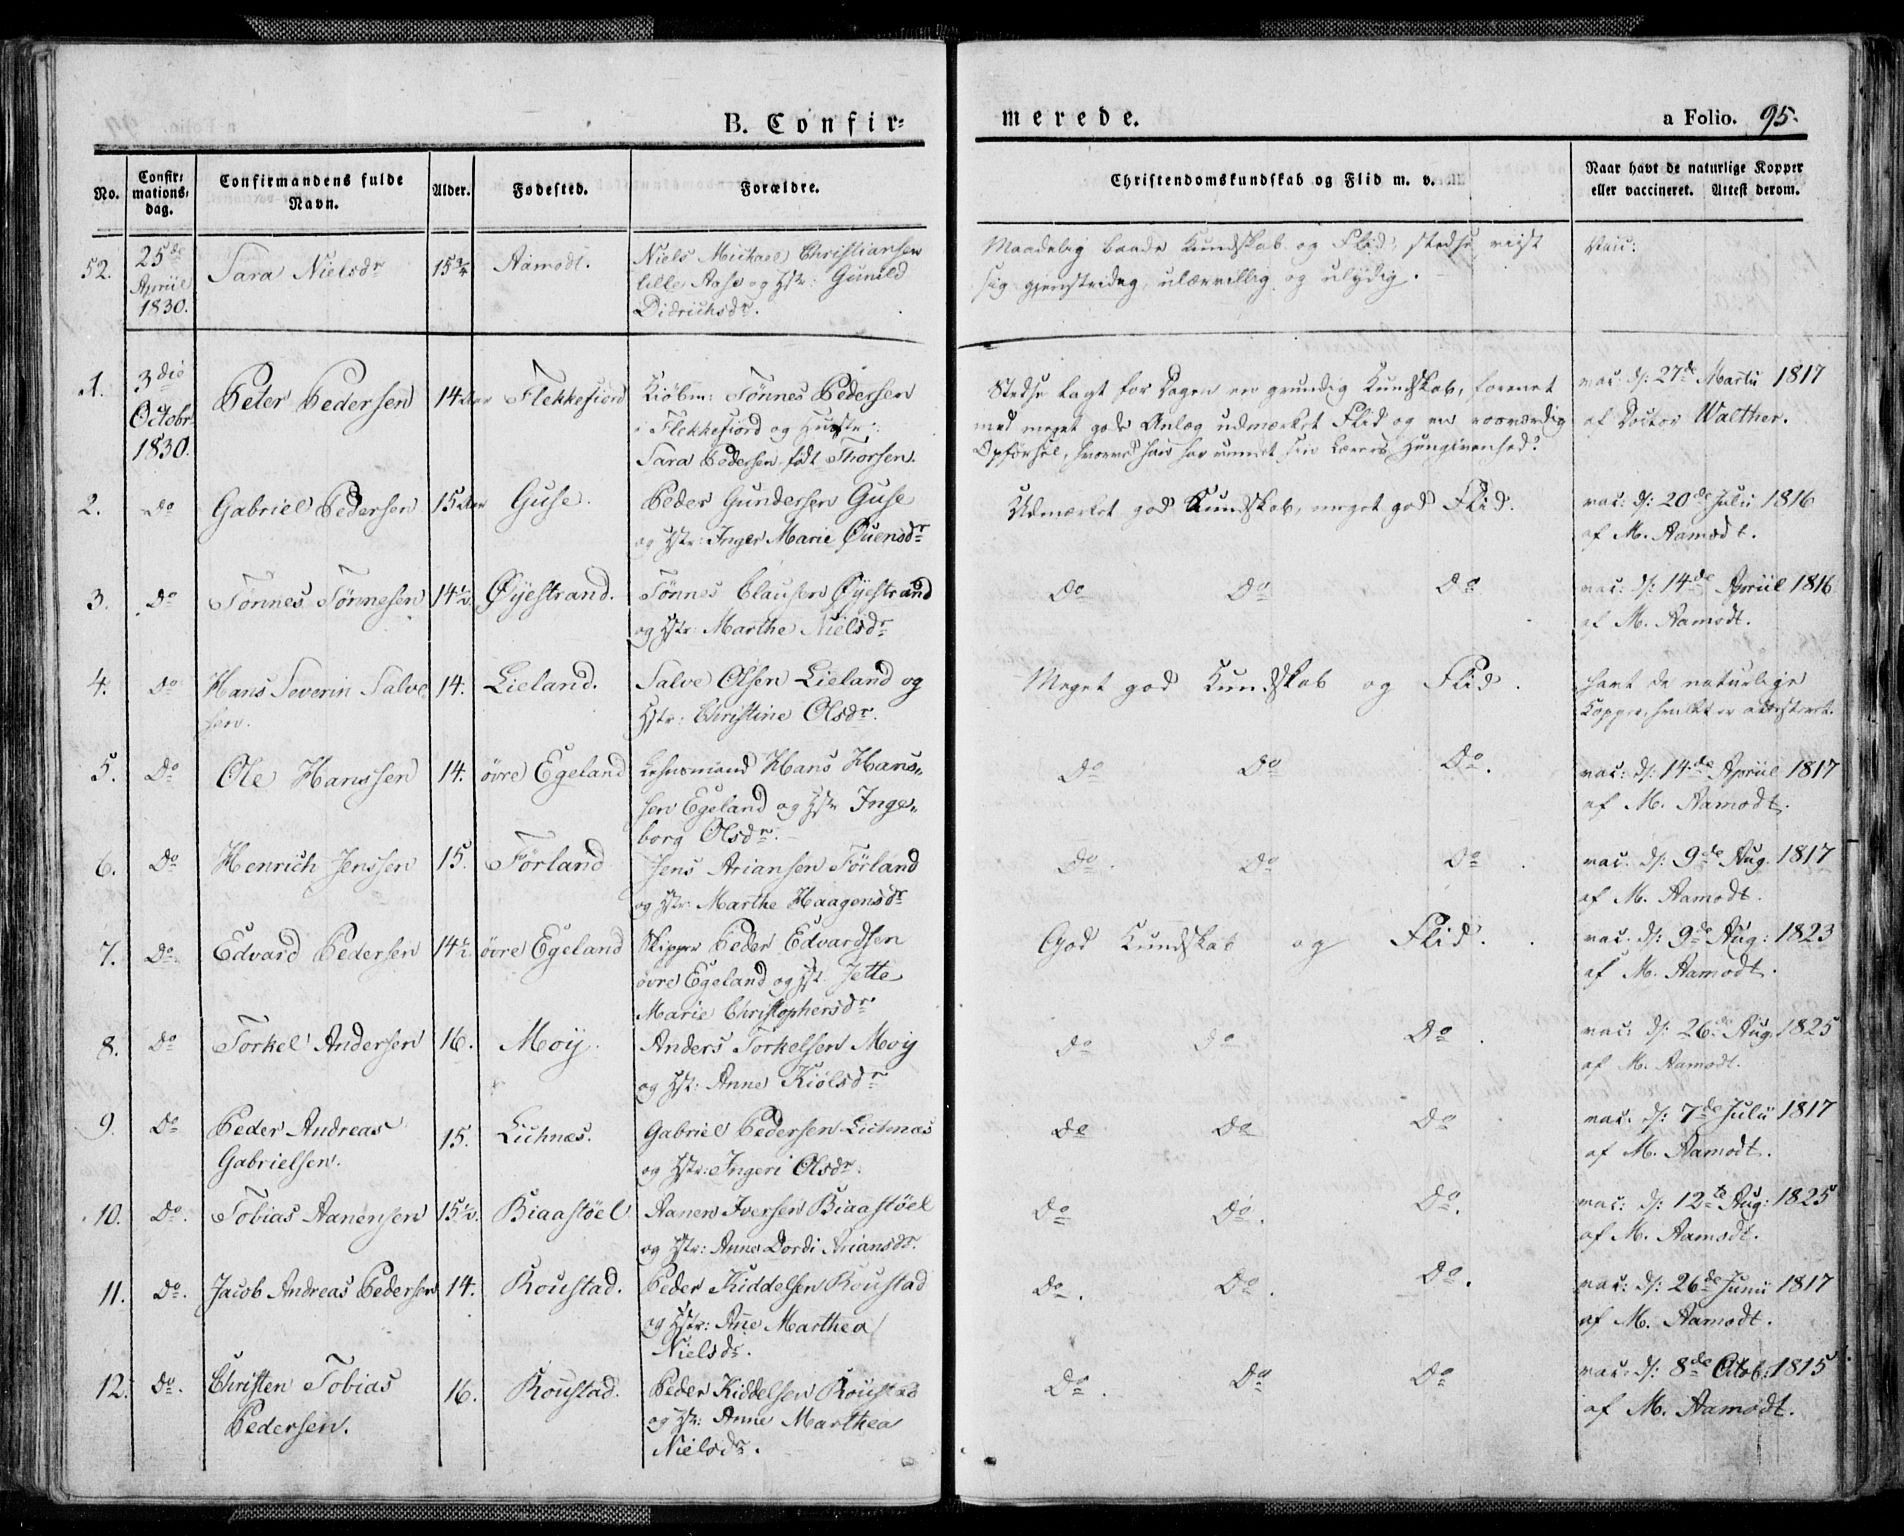 B. Confir=
merede.
a Folio. 95.
No.
Confir=
mations=
dag.
Confirmandens fulde
Navn.
Alder.
Fødested.
Forældre.
Christendomskundskab og Flid m. v.
Naar havt de naturlige Kopper
eller vaccineret. Attest derom.
52.
25de
Apriil
1830.
Sara Nielsdr
15¾
Aamodt.
Niels Michael Christiansen
lille Aase og Hstr: Gunild
Didrichsdr.
Maadelig baade Kundskab og Flid, stedse viist
sig gjenstridig, ulærvillig og ulydig.
Vac:
1.
3die
Octobr
1830.
Peter Pedersen
14 Aar
Flekkefiord
Kiöbm: Tönnes Pedersen
i Flekkefiord og Hustr:
Sara Pedersen födt Thorsen.
Stedse lagt for Dagen en grundig Kundskab, forenet
med meget gode Anlæg udmærket Flid og en roesværdig
Opförsel, hvorved han har vundet sin Lærers Hengivenhed.
vac: d: 27de Martii 1817
af Doctor Walther.
2.
Do
Gabriel Pedersen
15 Aar
Guse.
Peder Gundersen Guse
og Hstr: Inger Marie Ouensdr
Udmærket god Kundskab, meget god Flid.
vac: d: 20de Julii 1816
af M. Aamodt.
3.
Do
Tönnes Tönnesen
14½
Øyestrand.
Tönnes Clausen Øyestrand
og Hstr: Marthe Nielsdr
Do Do Do
vac: d: 14de Apriil 1816
af M. Aamodt.
4.
Do
Hans Severin Salve
sen.
14.
Lieland.
Salve Olsen Lieland og
Hstr: Christine Olsdr.
Meget god Kundskab og Flid.
havt de naturlige
Kopper, hvilket er attesteret.
5.
Do
Ole Hanssen
14.
övre Egeland
Lehnsmand Hans Hans=
sen Egeland og Hstr Inge=
borg Olsdr.
Do Do Do.
vac: d: 14de Apriil 1817
af M. Aamodt.
6.
Do
Henrich Jenssen
15.
Förland
Jens Ariansen Förland
og Hstr: Marthe Haagensdr
Do. Do Do.
vac. d: 9de Aug. 1817
af M. Aamodt.
7.
Do.
Edvard Pedersen
14½
övre Egeland
Skipper Peder Edvardsen
övre Egeland og Hst Jette
Marie Christophersdr
God Kundskab og Flid.
vac. d: 9de Aug: 1823
af M. Aamodt.
8.
Do
Torkel Andersen
16.
Moij.
Anders Torkelsen Moij
og Hst: Anne Kiölsdr
Do Do Do.
vac: d: 26de Aug. 1825
af M. Aamodt.
9.
Do
Peder Andreas
Gabrielsen.
15.
Gabriel Pedersen
og Hstr: Ingeri Olsdr.
Do Do Do
vac. d: 7de Julii 1817
af M. Aamodt.
10.
Do.
Tobias Aanensen
15½.
Biaastöel
Aanen Iversen Biaastöel
og Hstr: Anne Dordi Ariansdr.
Do Do. Do.
vac: d: 12te Aug: 1825
af M. Aamodt.
11.
Do.
Jacob Andreas Pedersen
14.
Roustad.
Peder Kiddelsen Roustad
og Hstr: Ane Marthea
Nielsdr.
Do. Do. Do.
vac: d: 26de Junii 1817
af M. Aamodt.
12.
Do.
Christen Tobias
Pedersen.
16.
Roustad.
Peder Kiddelsen Roustad
og Hstr: Anne Marthea
Nielsdr.
Do. Do Do
vac. d: 8de Octob: 1815
af M. Aamodt.